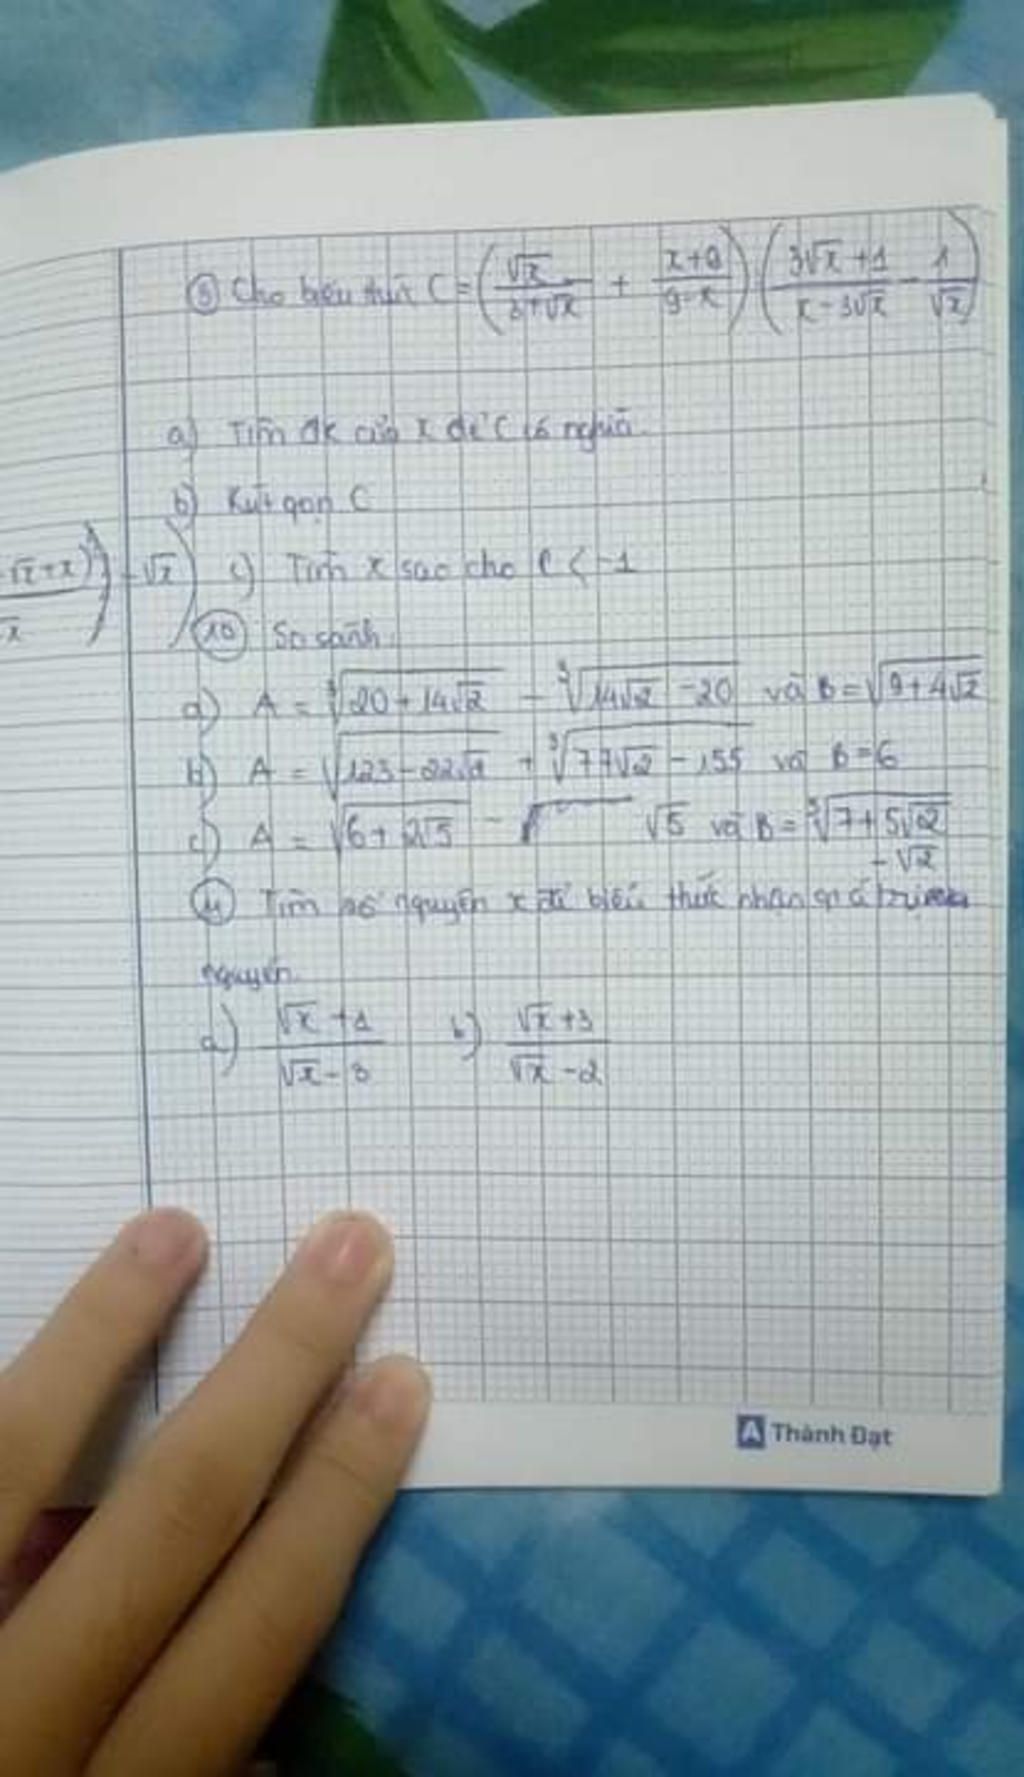 ⑨ Cho biểu thức C = (√x/(3+√x) + (x+9)/(9-x)) : ((3√x+1)/(x-3√x) - 1/√x)
a) Tìm đk của x để C có nghĩa.
b) Rút gọn C
√x+x) - √x) c) Tìm x sao cho C < -1
√x
⑩ So sánh
a) A = ∛(20+14√2) - ∛(14√2-20) và B = √(9+4√2)
b) A = √(123-22√2) + ∛(77√2-155) và B = 6
c) A = √(6+2√5) - √5 và B = ∛(7+5√2)
- √2
⑪ Tìm số nguyên x để biểu thức nhận giá trị
nguyên.
a) (√x+1)/(√x-3) b) (√x+3)/(√x-2)
A Thành Đạt